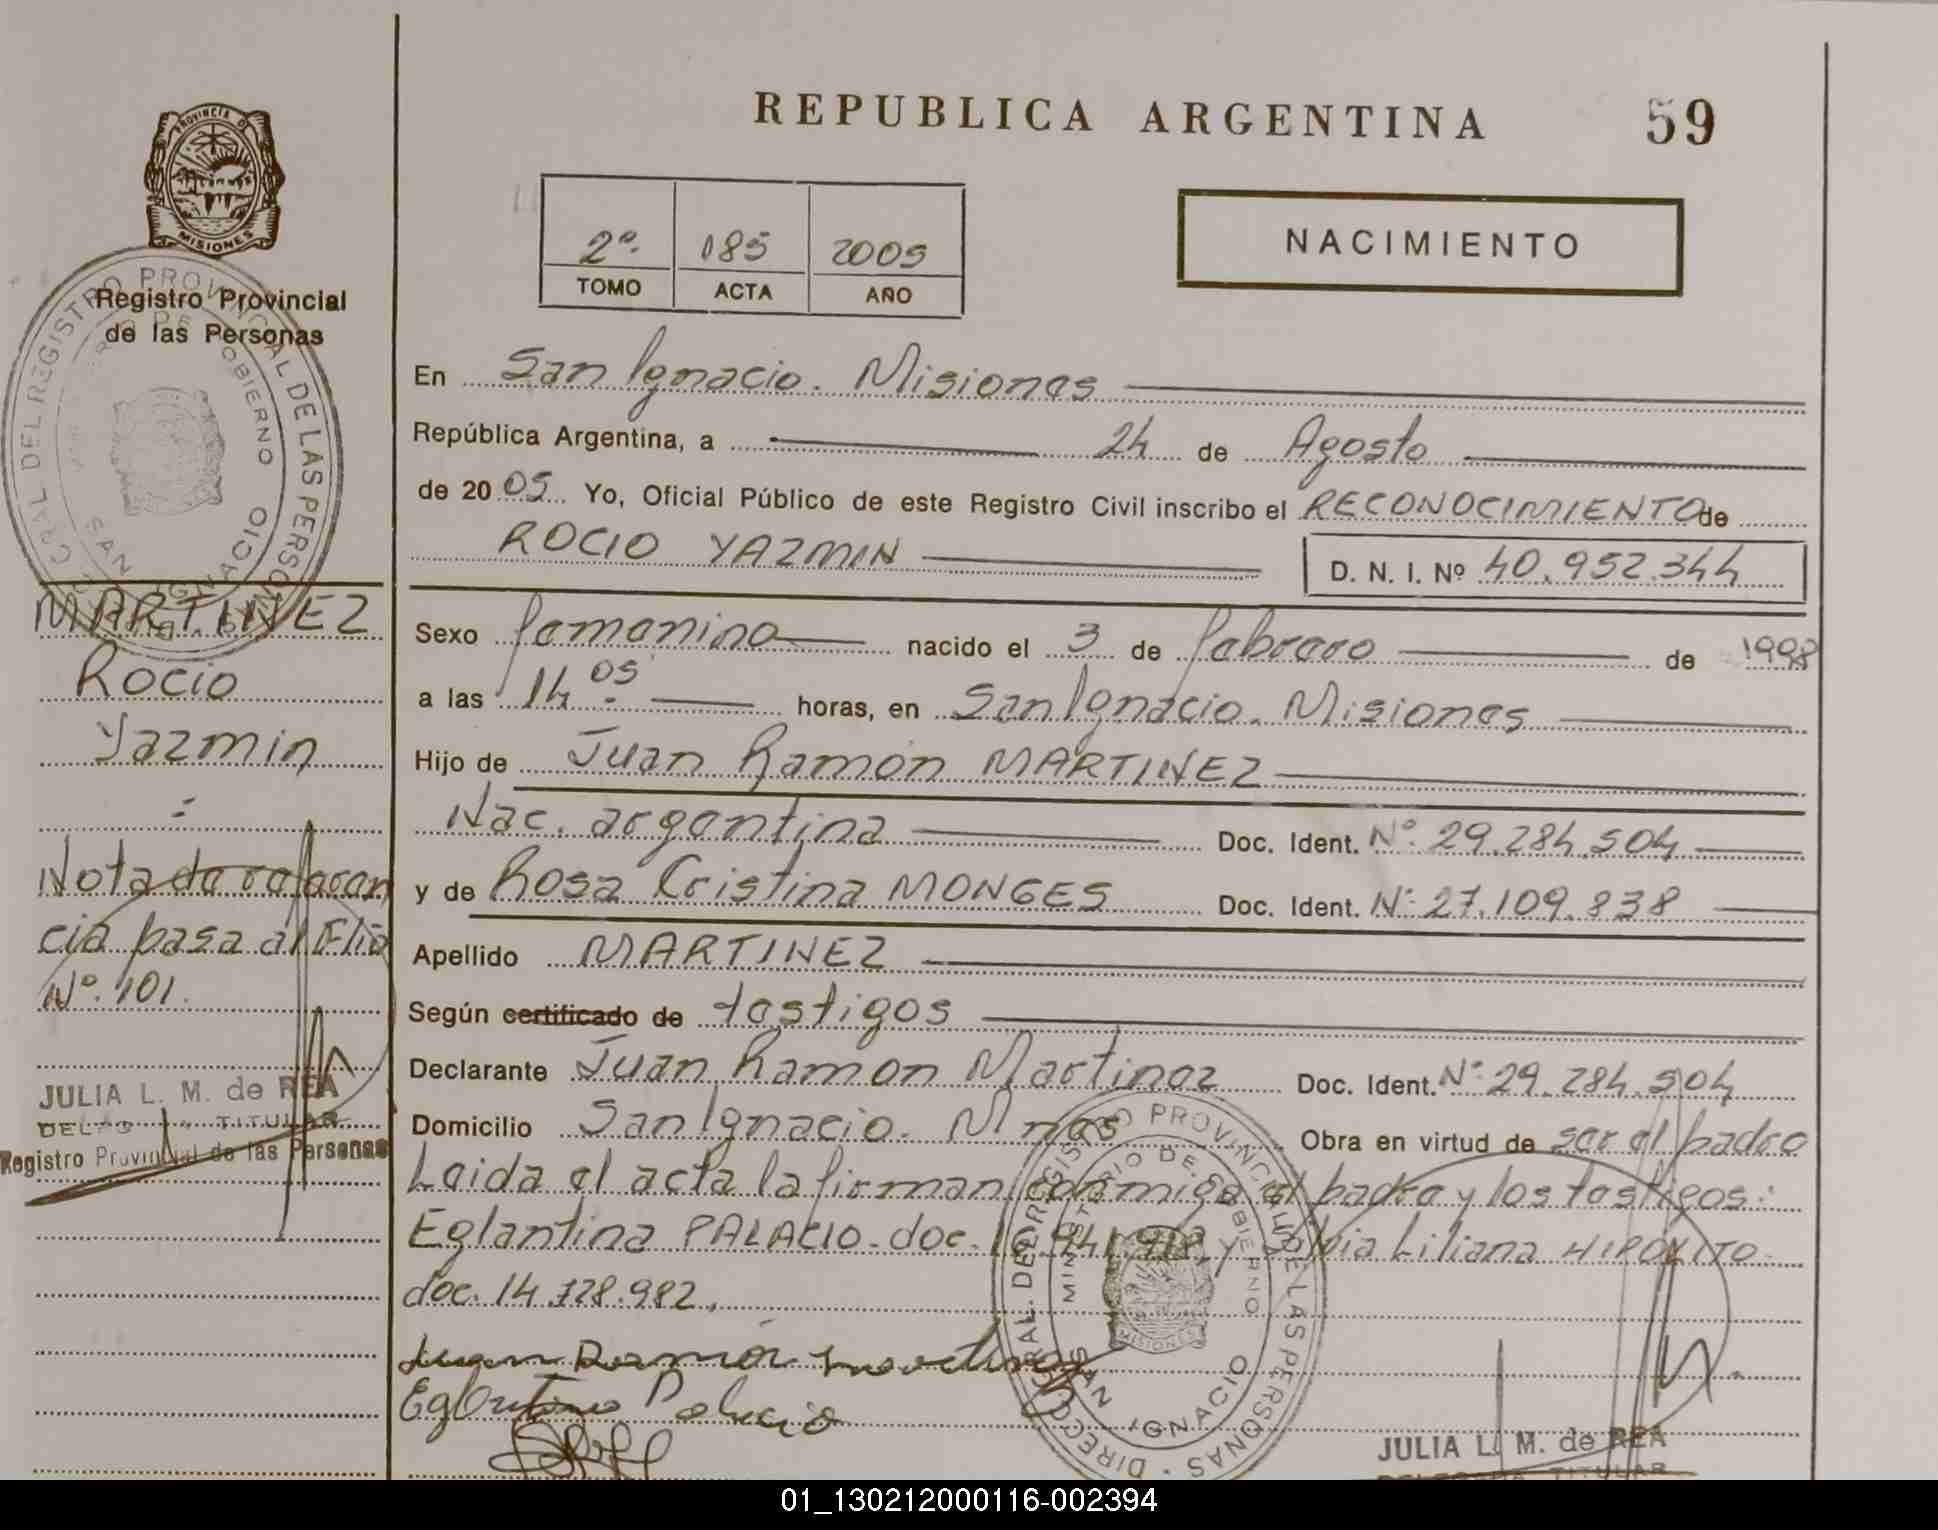 REPUBLICA ARGENTINA
59
PROVINCIA DE
MISIONES
Registro Provincial
de las Personas
2º. 185 2005
TOMO ACTA AÑO
NACIMIENTO
En San Ignacio. Misiones
República Argentina, a 24 de Agosto
de 20 05 Yo, Oficial Público de este Registro Civil inscribo el RECONOCIMIENTO de
ROCIO YAZMIN
D. N. I. Nº 40.952.344
MARTINEZ
Rocio
Yazmin
Nota de referen
cia pasa al Flio
Nº. 101.
JULIA L. M. de REA
DELEGADA TITULAR
Registro Provincial de las Personas
Sexo femenino nacido el 3 de febrero de 1998
a las 14:05 horas, en San Ignacio. Misiones
Hijo de Juan Ramón MARTINEZ
Nac. argentina Doc. Ident. Nº. 29.284.504
y de Rosa Cristina MONGES Doc. Ident. Nº. 27.109.838
Apellido MARTINEZ
Según certificado de testigos
Declarante Juan Ramon Martinez Doc. Ident. Nº. 29.284.504
Domicilio San Ignacio. Mnes Obra en virtud de ser el padre
Leida el acta la firman conmigo el padre y los testigos:
Eglantina PALACIO. doc. 16.941.918 y Silvia Liliana HIPOLITO.
doc. 14.728.982.
Juan Ramón Martinez
Eglantina Palacio
DIRECC. GRAL. DEL REGISTRO PROVINCIAL DE LAS PERSONAS
MINISTERIO DE GOBIERNO
SAN IGNACIO
MISIONES
JULIA L. M. de REA
DELEGADA TITULAR
01_130212000116-002394